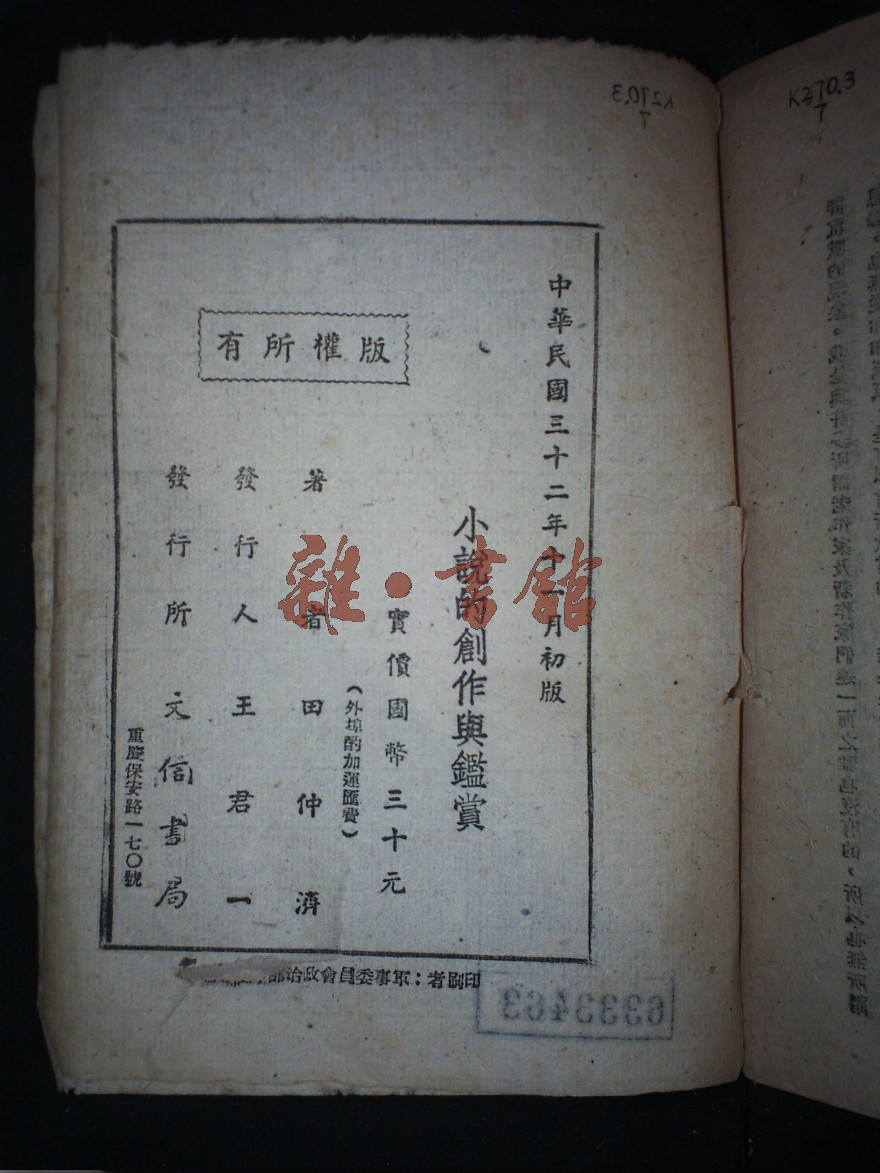 K270.3
7
K270.3
7
中華民國三十二年十一月初版
小說的創作與鑑賞
實價國幣三十元
(外埠酌加運匯費)
著者田仲濟
發行人王君一
發行所文信書局
重慶保安路一七〇號
版權所有
印刷者：軍事委員會政治部
6333463
雜·書館